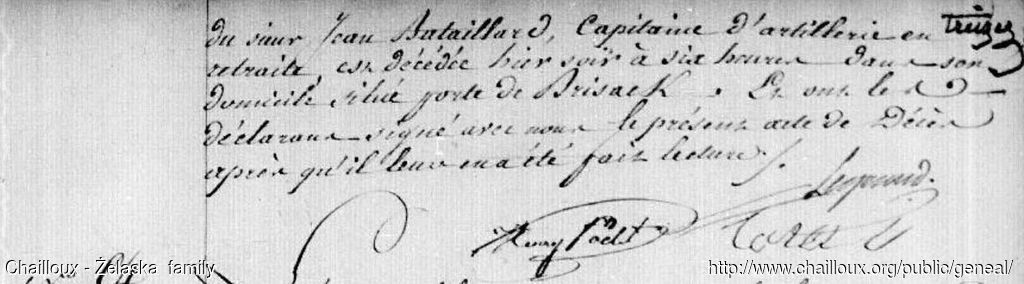 du sieur Jean Bataillard, Capitaine d'artillerie en
retraite, est décédée hier soir à six heures dans son
domicile situé porte de Brisack. Et ont les
déclarans signé avec nous le présent acte de Décès
après qu'il leur en a été fait lecture.
Legrand.
Henry
Chailloux - Żelaska family
http://www.chailloux.org/public/geneal/